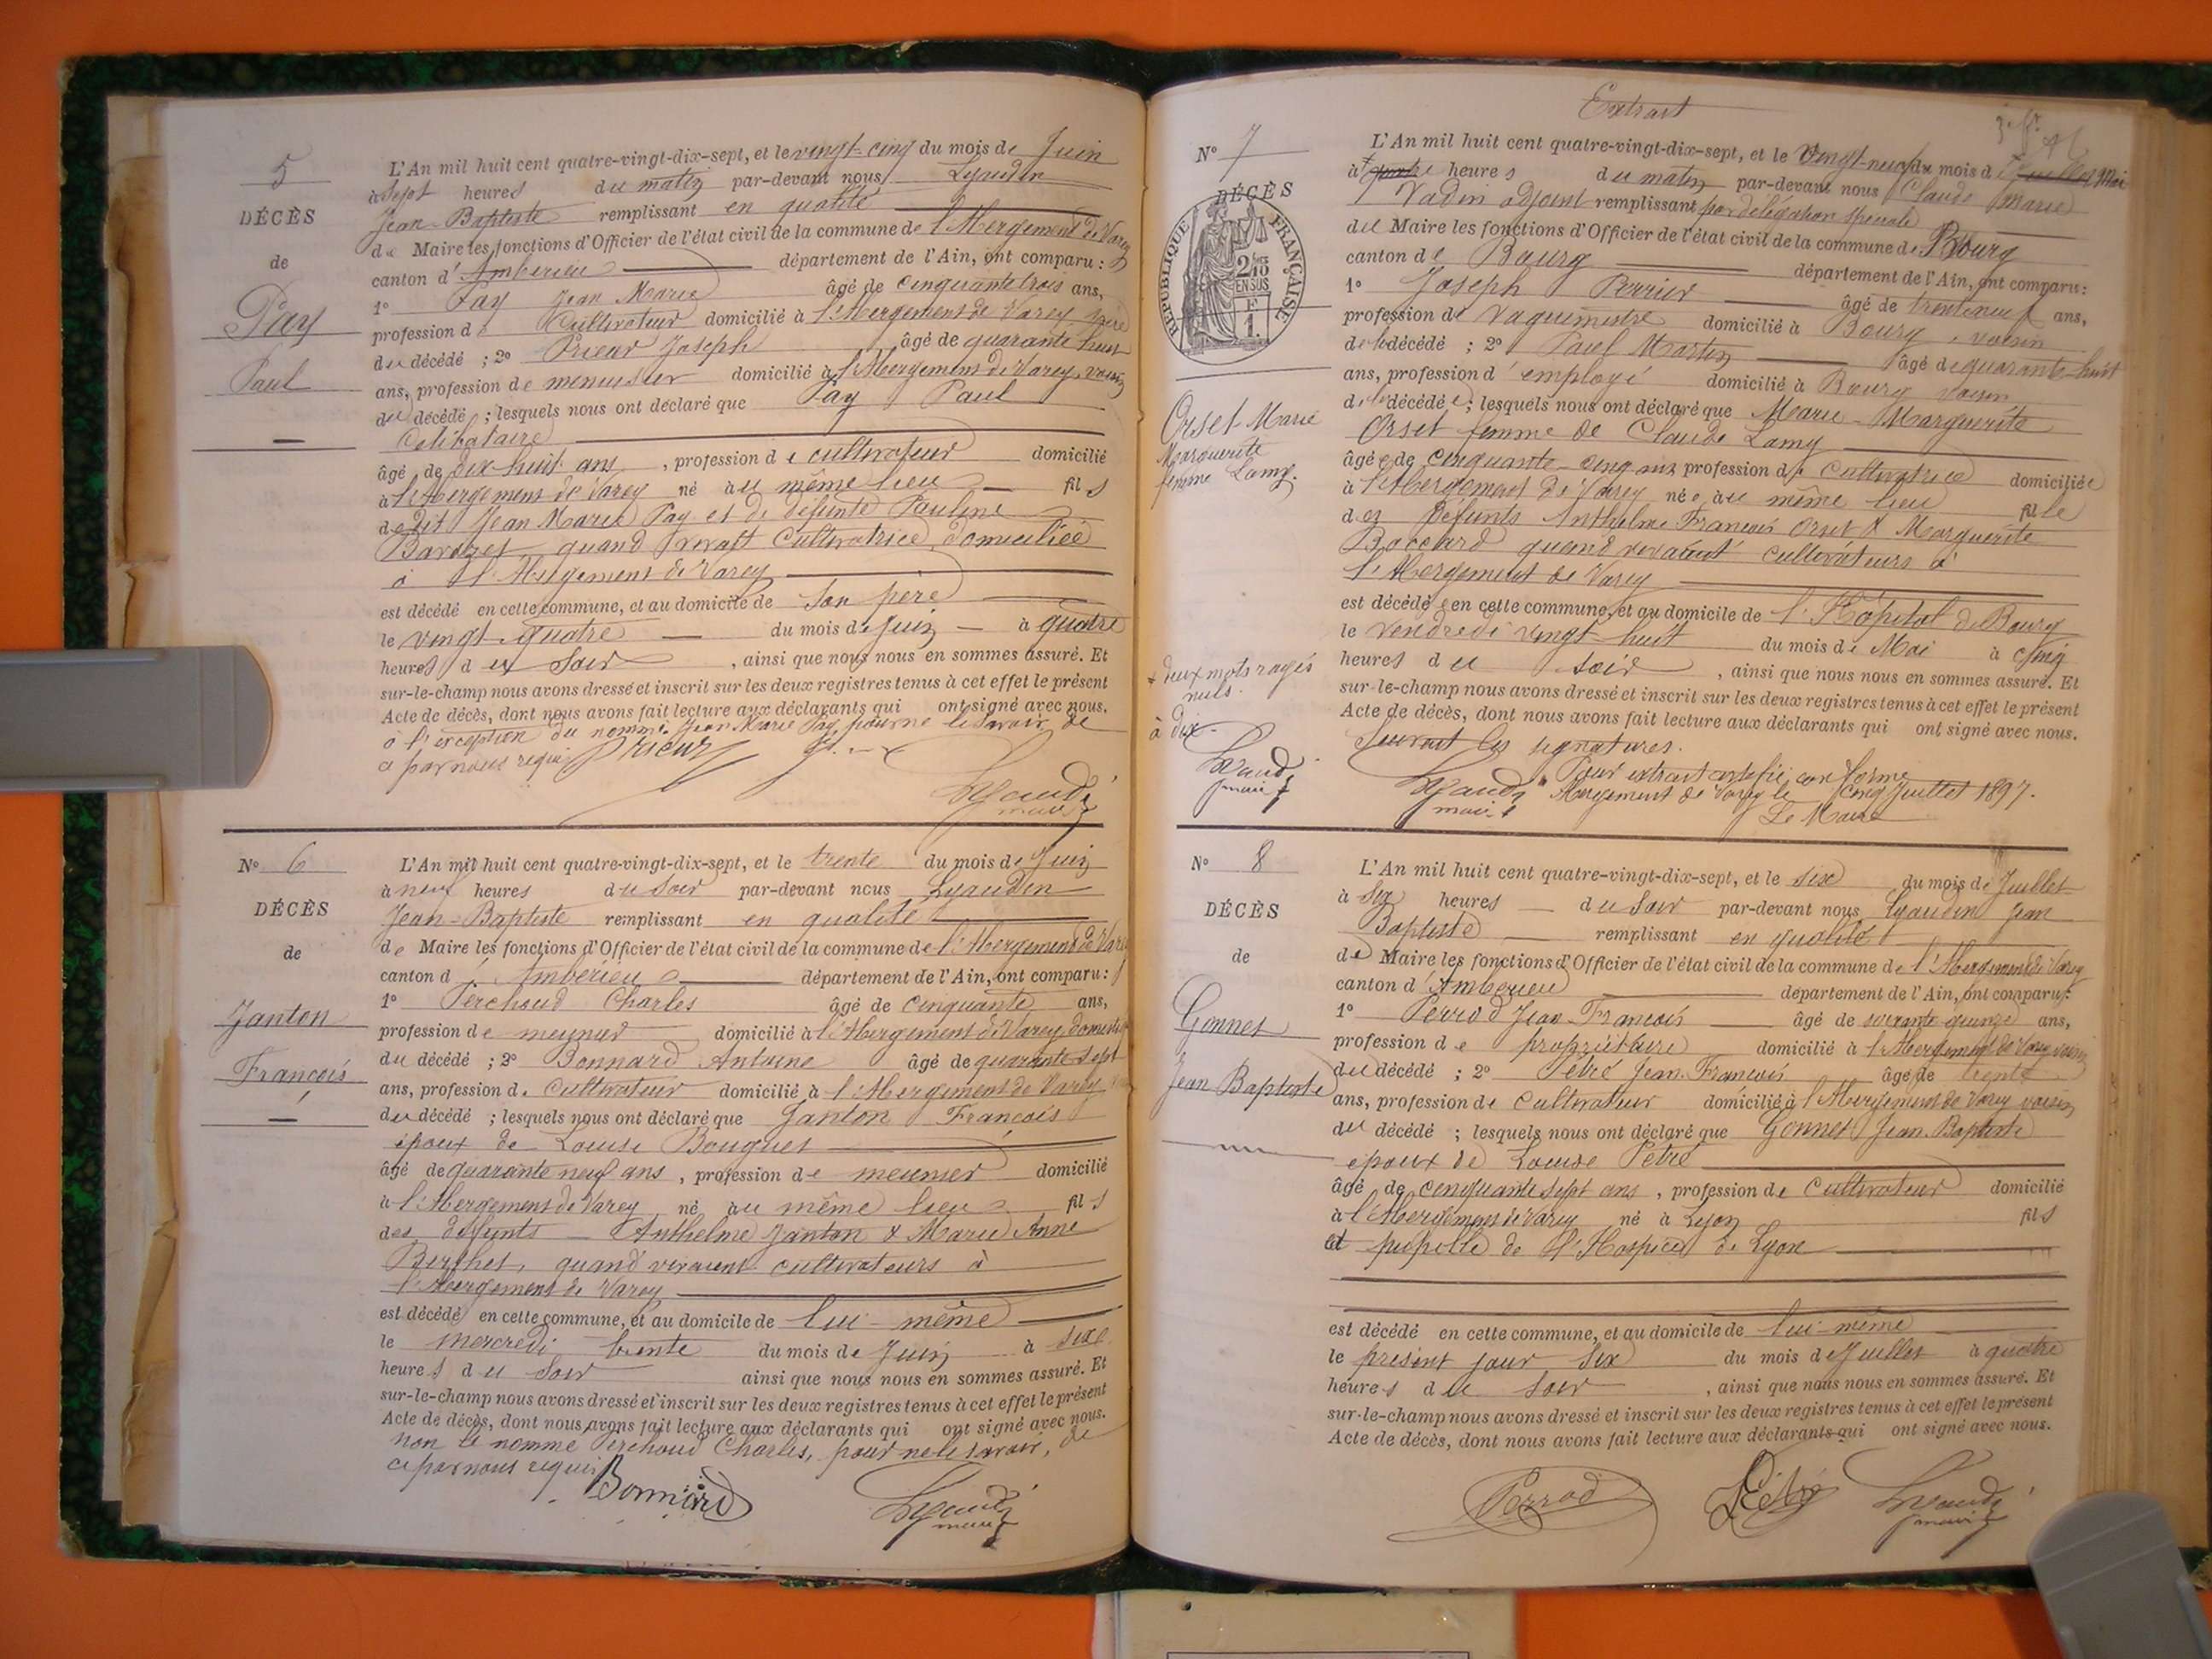 5
DÉCÈS
de
Pay
Paul
L'An mil huit cent quatre-vingt-dix-sept, et le vingt-cinq du mois de Juin
à Sept heures du matin par-devant nous Lyaudin
Jean-Baptiste remplissant en qualité
de Maire les fonctions d'Officier de l'état civil de la commune de l'Abergement de Varey
canton d'Ambérieu département de l'Ain, ont comparu :
1° Pay Jean Marie âgé de cinquante trois ans,
profession de Cultivateur domicilié à l'Abergement de Varey père
du décédé ; 2° Prieur Joseph âgé de quarante huit
ans, profession de menuisier domicilié à l'Abergement de Varey, voisin
du décédé ; lesquels nous ont déclaré que Pay Paul
Célibataire
âgé de dix-huit ans, profession de cultivateur domicilié
à l'Abergement de Varey né au même lieu fils
de dit Jean Marie Pay et de défunte Pauline
quand vivait Cultivatrice, domiciliée
à l'Abergement de Varey
est décédé en cette commune, et au domicile de son père
le vingt-quatre du mois de Juin à quatre
heures du Soir, ainsi que nous nous en sommes assuré. Et
sur-le-champ nous avons dressé et inscrit sur les deux registres tenus à cet effet le présent
Acte de décès, dont nous avons fait lecture aux déclarants qui ont signé avec nous.
à l'exception du nommé Jean Marie Pay, pour ne le savoir, de
ce par nous requis Prieur
Lyaudin
maire
N° 6
DÉCÈS
de
Janton
François
L'An mil huit cent quatre-vingt-dix-sept, et le trente du mois de Juin
à neuf heures du soir par-devant nous Lyaudin
Jean-Baptiste remplissant en qualité
de Maire les fonctions d'Officier de l'état civil de la commune de l'Abergement de Varey
canton d'Ambérieu département de l'Ain, ont comparu :
1° Perchoud Charles âgé de cinquante ans,
profession de meunier domicilié à l'Abergement de Varey domestique
du décédé ; 2° Bonnard Antoine âgé de quarante-sept
ans, profession de Cultivateur domicilié à l'Abergement de Varey
du décédé ; lesquels nous ont déclaré que Janton François
époux de Louise Bouguet
âgé de quarante neuf ans, profession de meunier domicilié
à l'Abergement de Varey né au même lieu fils
des défunts Anthelme Janton & Marie Anne
Berthet, quand vivaient cultivateurs à
l'Abergement de Varey
est décédé en cette commune, et au domicile de lui-même
le mercredi trente du mois de Juin à six
heures du Soir ainsi que nous nous en sommes assuré. Et
sur-le-champ nous avons dressé et inscrit sur les deux registres tenus à cet effet le présent
Acte de décès, dont nous avons fait lecture aux déclarants qui ont signé avec nous.
non le nommé Perchoud Charles, pour ne le savoir, de
ce par nous requis
Bonnard
Lyaudin
maire
Extrait
N° 7
DÉCÈS
RÉPUBLIQUE FRANÇAISE
2/10 EN SUS
F
1.
Orset Marie
Marguerite
femme Lamy.
+ deux mots rayés
nuls.
à dix.
Lyaudin
maire
L'An mil huit cent quatre-vingt-dix-sept, et le Vingt-neuf du mois de Juillet Mai
à heures du matin par-devant nous Claude Marie
Vadin adjoint remplissant par délégation spéciale
du Maire les fonctions d'Officier de l'état civil de la commune de Bourg
canton de Bourg département de l'Ain, ont comparu :
1° Joseph Perrier âgé de trente neuf ans,
profession de Vaguemestre domicilié à Bourg, voisin
de la décédé ; 2° Paul Martin âgé de quarante-huit
ans, profession d'employé domicilié à Bourg voisin
de la décédée ; lesquels nous ont déclaré que Marie-Marguerite
Orset femme de Claude Lamy
âgée de cinquante-cinq ans profession de cultivatrice domiciliée
à l'Abergement de Varey née au même lieu fille
des défunts Anthelme François Orset & Marguerite
Boccard quand vivaient cultivateurs à
l'Abergement de Varey
est décédée en cette commune, et au domicile de l'Hôpital de Bourg
le Vendredi vingt-huit du mois de Mai à cinq
heures du soir, ainsi que nous nous en sommes assuré. Et
sur-le-champ nous avons dressé et inscrit sur les deux registres tenus à cet effet le présent
Acte de décès, dont nous avons fait lecture aux déclarants qui ont signé avec nous.
Suivent les signatures.
Pour extrait certifié conforme
Abergement de Varey le cinq Juillet 1897.
Lyaudin
maire
Le Maire
N° 8
DÉCÈS
de
Gonnet
Jean Baptiste
L'An mil huit cent quatre-vingt-dix-sept, et le six du mois de Juillet
à six heures du Soir par-devant nous Lyaudin Jean
Baptiste remplissant en qualité
de Maire les fonctions d'Officier de l'état civil de la commune de l'Abergement de Varey
canton d'Ambérieu département de l'Ain, ont comparu :
1° Perrod Jean-François âgé de soixante quinze ans,
profession de propriétaire domicilié à l'Abergement de Varey voisin
du décédé ; 2° Pétré Jean François âgé de trente
ans, profession de Cultivateur domicilié à l'Abergement de Varey voisin
du décédé ; lesquels nous ont déclaré que Gonnet Jean Baptiste
époux de Louise Pétré
âgé de cinquante sept ans, profession de Cultivateur domicilié
à l'Abergement de Varey né à Lyon fils
et pupille de l'Hospice de Lyon
est décédé en cette commune, et au domicile de lui-même
le présent jour six du mois de Juillet à quatre
heures du Soir, ainsi que nous nous en sommes assuré. Et
sur-le-champ nous avons dressé et inscrit sur les deux registres tenus à cet effet le présent
Acte de décès, dont nous avons fait lecture aux déclarants qui ont signé avec nous.
Perrod Pétré Lyaudin
maire